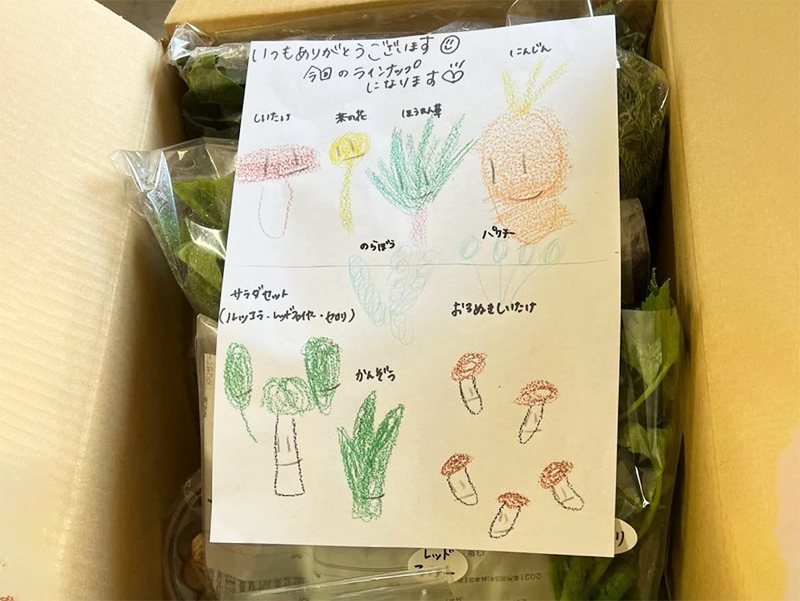 いつもありがとうございます
今回のラインナップ
になります
にんじん
しいたけ
菜の花
ほうれん草
のらぼう
パクチー
サラダセット
(ルッコラ・レッドファイヤー・セロリ)
おろぬきしいたけ
かんぞう
レッド